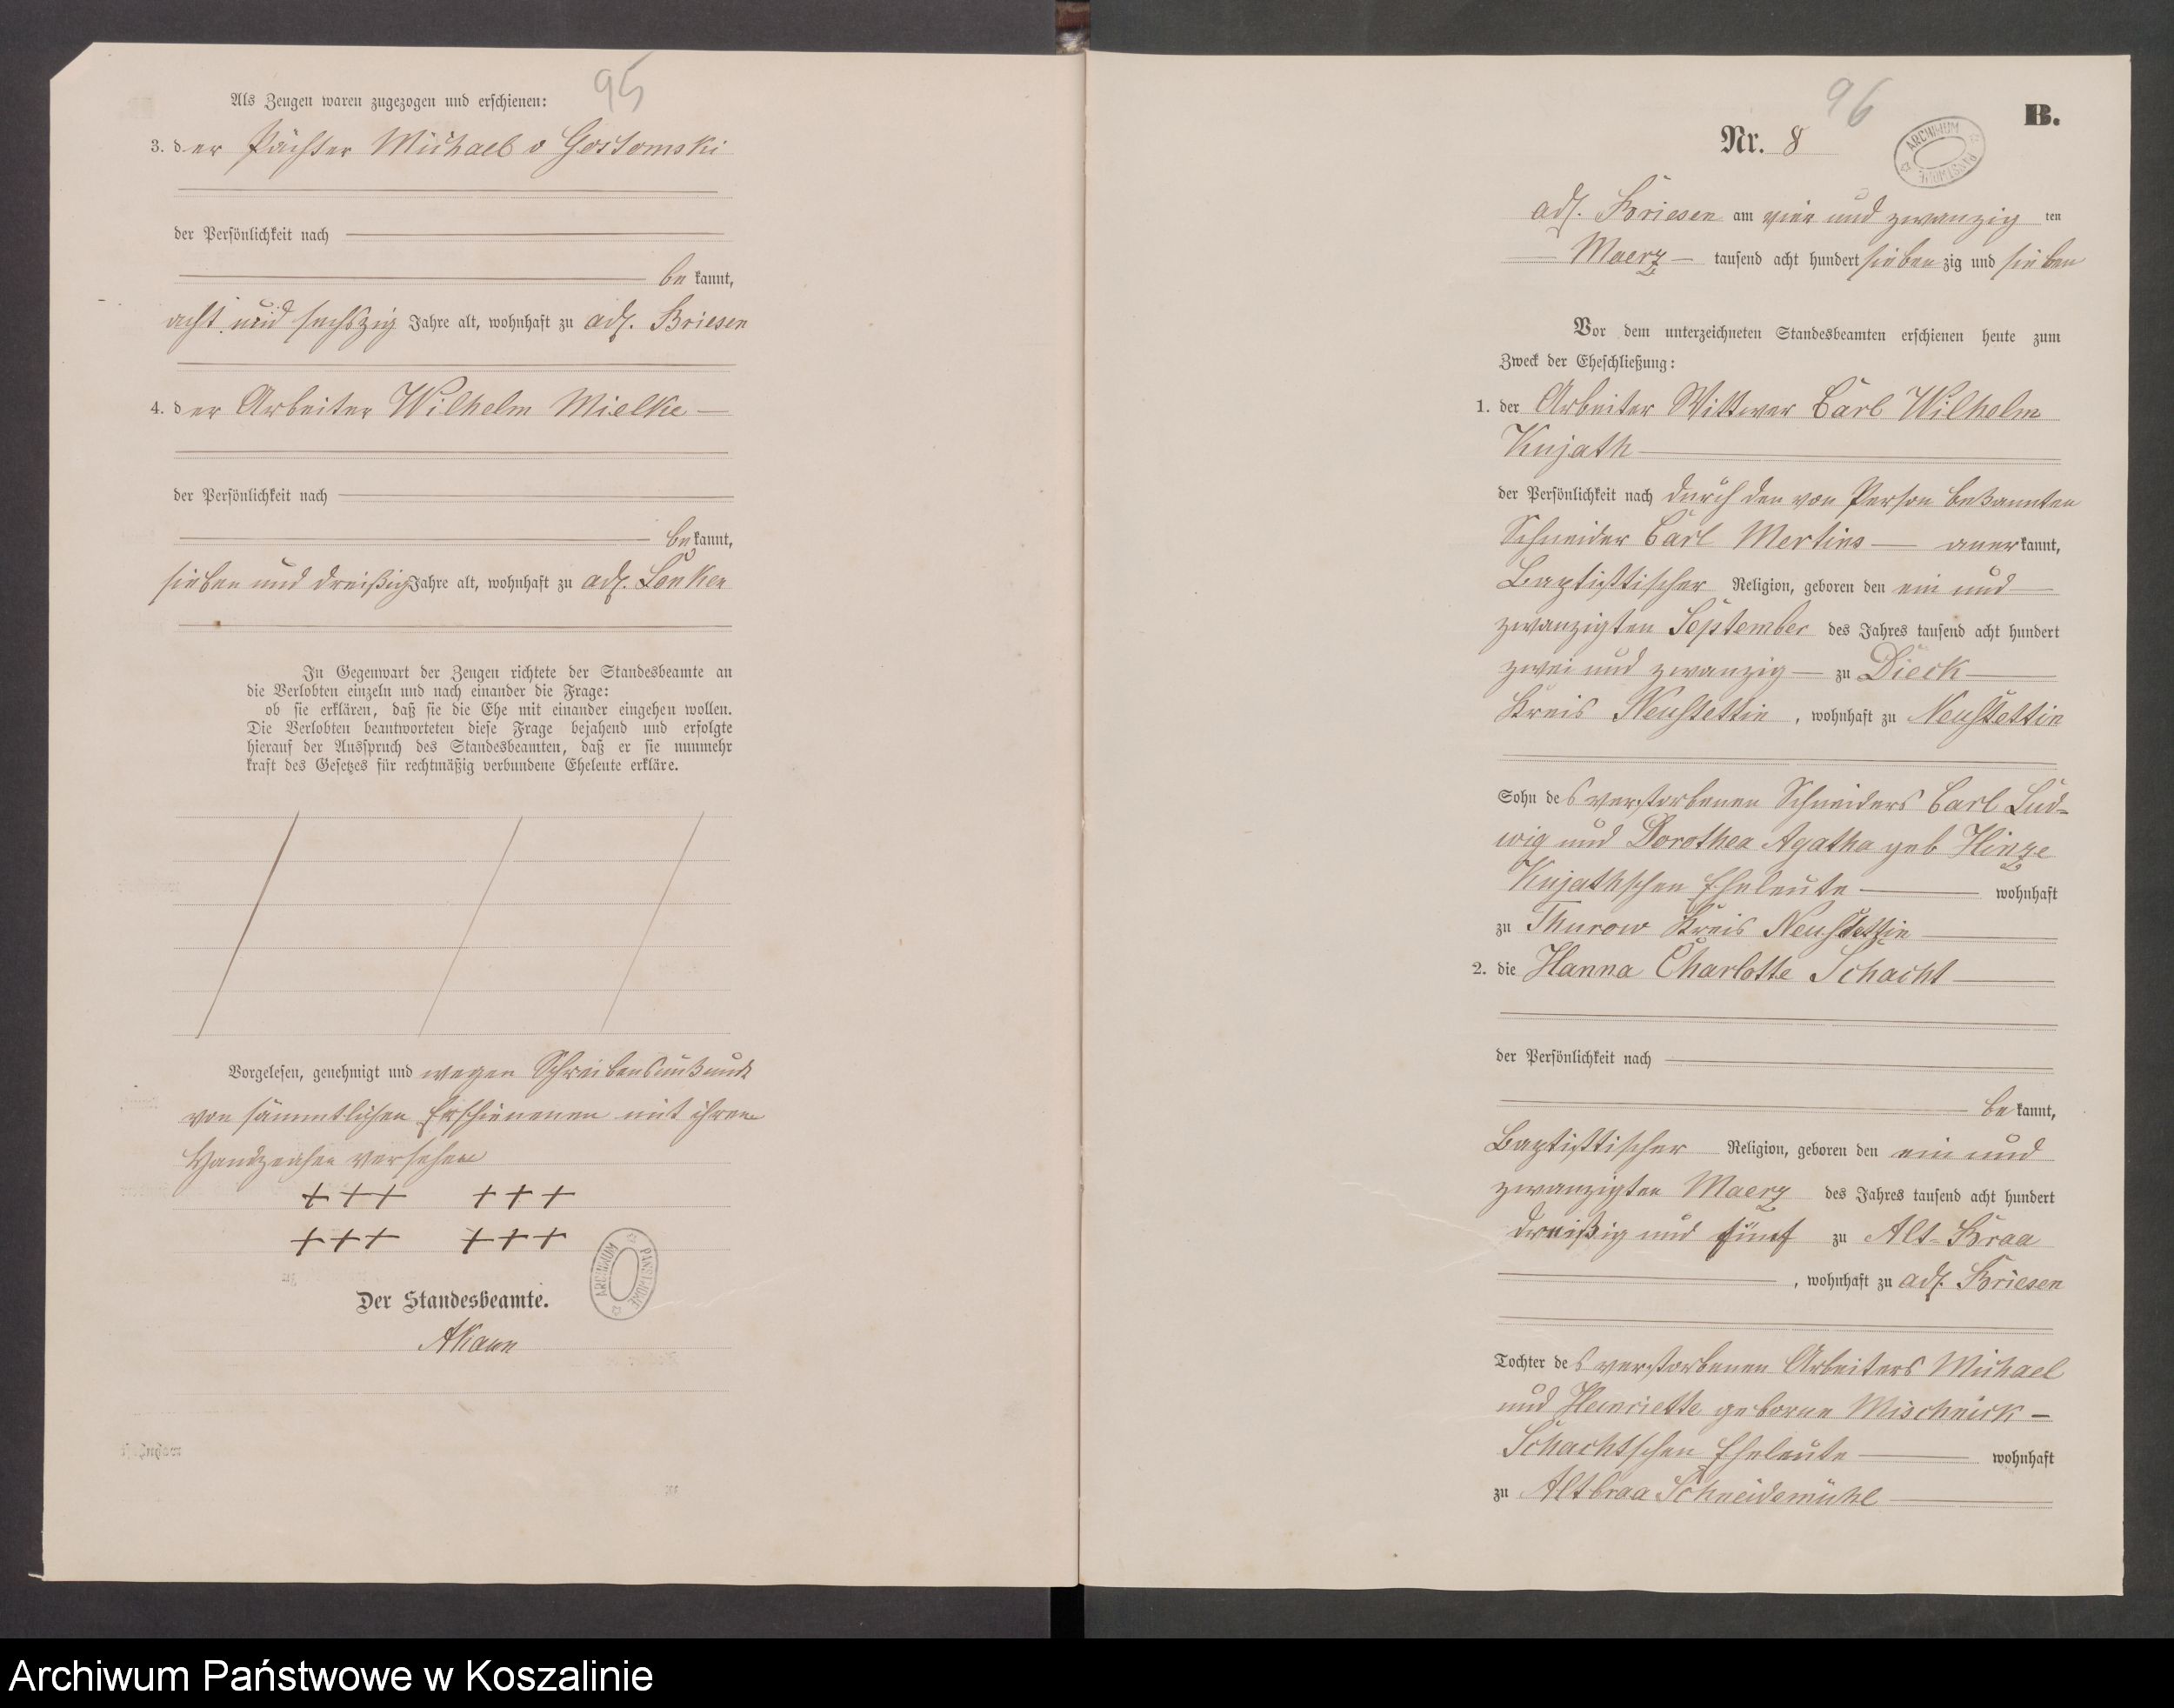 95
Als Zeugen waren zugezogen und erschienen:
3. der Pächter Michael v Gostomski
der Persönlichkeit nach
bekannt,
acht und sechszig Jahre alt, wohnhaft zu adl. Briesen
4. der Arbeiter Wilhelm Mielke
der Persönlichkeit nach
bekannt,
sieben und dreißig Jahre alt, wohnhaft zu adl. Lonken
In Gegenwart der Zeugen richtete der Standesbeamte an
die Verlobten einzeln und nach einander die Frage:
ob sie erklären, daß sie die Ehe mit einander eingehen wollen.
Die Verlobten beantworteten diese Frage bejahend und erfolgte
hierauf der Ausspruch des Standesbeamten, daß er sie nunmehr
kraft des Gesetzes für rechtmäßig verbundene Eheleute erkläre.
Vorgelesen, genehmigt und wegen Schreibensunkunde
von sämmtlichen Erschienenen mit ihren
Handzeichen versehen
+++ +++
+++ +++
ARCHIWUM PAŃSTWOWE
Der Standesbeamte.
96
B.
Nr. 8
ARCHIWUM PAŃSTWOWE
adl. Briesen am vier und zwanzig ten
Maerz tausend acht hundert siebenzig und sieben
Vor dem unterzeichneten Standesbeamten erschienen heute zum
Zweck der Eheschließung:
1. der Arbeiter Wittwer Carl Wilhelm
Kujath
der Persönlichkeit nach durch den von Person bekannten
Schneider Carl Mertins anerkannt,
Baptistischer Religion, geboren den ein und
zwanzigten September des Jahres tausend acht hundert
zwei und zwanzig zu Dieck
Kreis Neustettin, wohnhaft zu Neustettin
Sohn des verstorbenen Schneiders Carl Lud-
wig und Dorothea Agatha geb Hinze
Kujathschen Eheleute wohnhaft
zu Thurow Kreis Neustettin
2. die Hanna Charlotte Schacht
der Persönlichkeit nach
bekannt,
Baptistischer Religion, geboren den ein und
zwanzigten Maerz des Jahres tausend acht hundert
dreißig und fünf zu Alt-Braa
, wohnhaft zu adl. Briesen
Tochter des verstorbenen Arbeiters Michael
und Henriette geborne Mischnick
Schachtschen Eheleute wohnhaft
zu Altbraa Schneidemühl
Archiwum Państwowe w Koszalinie